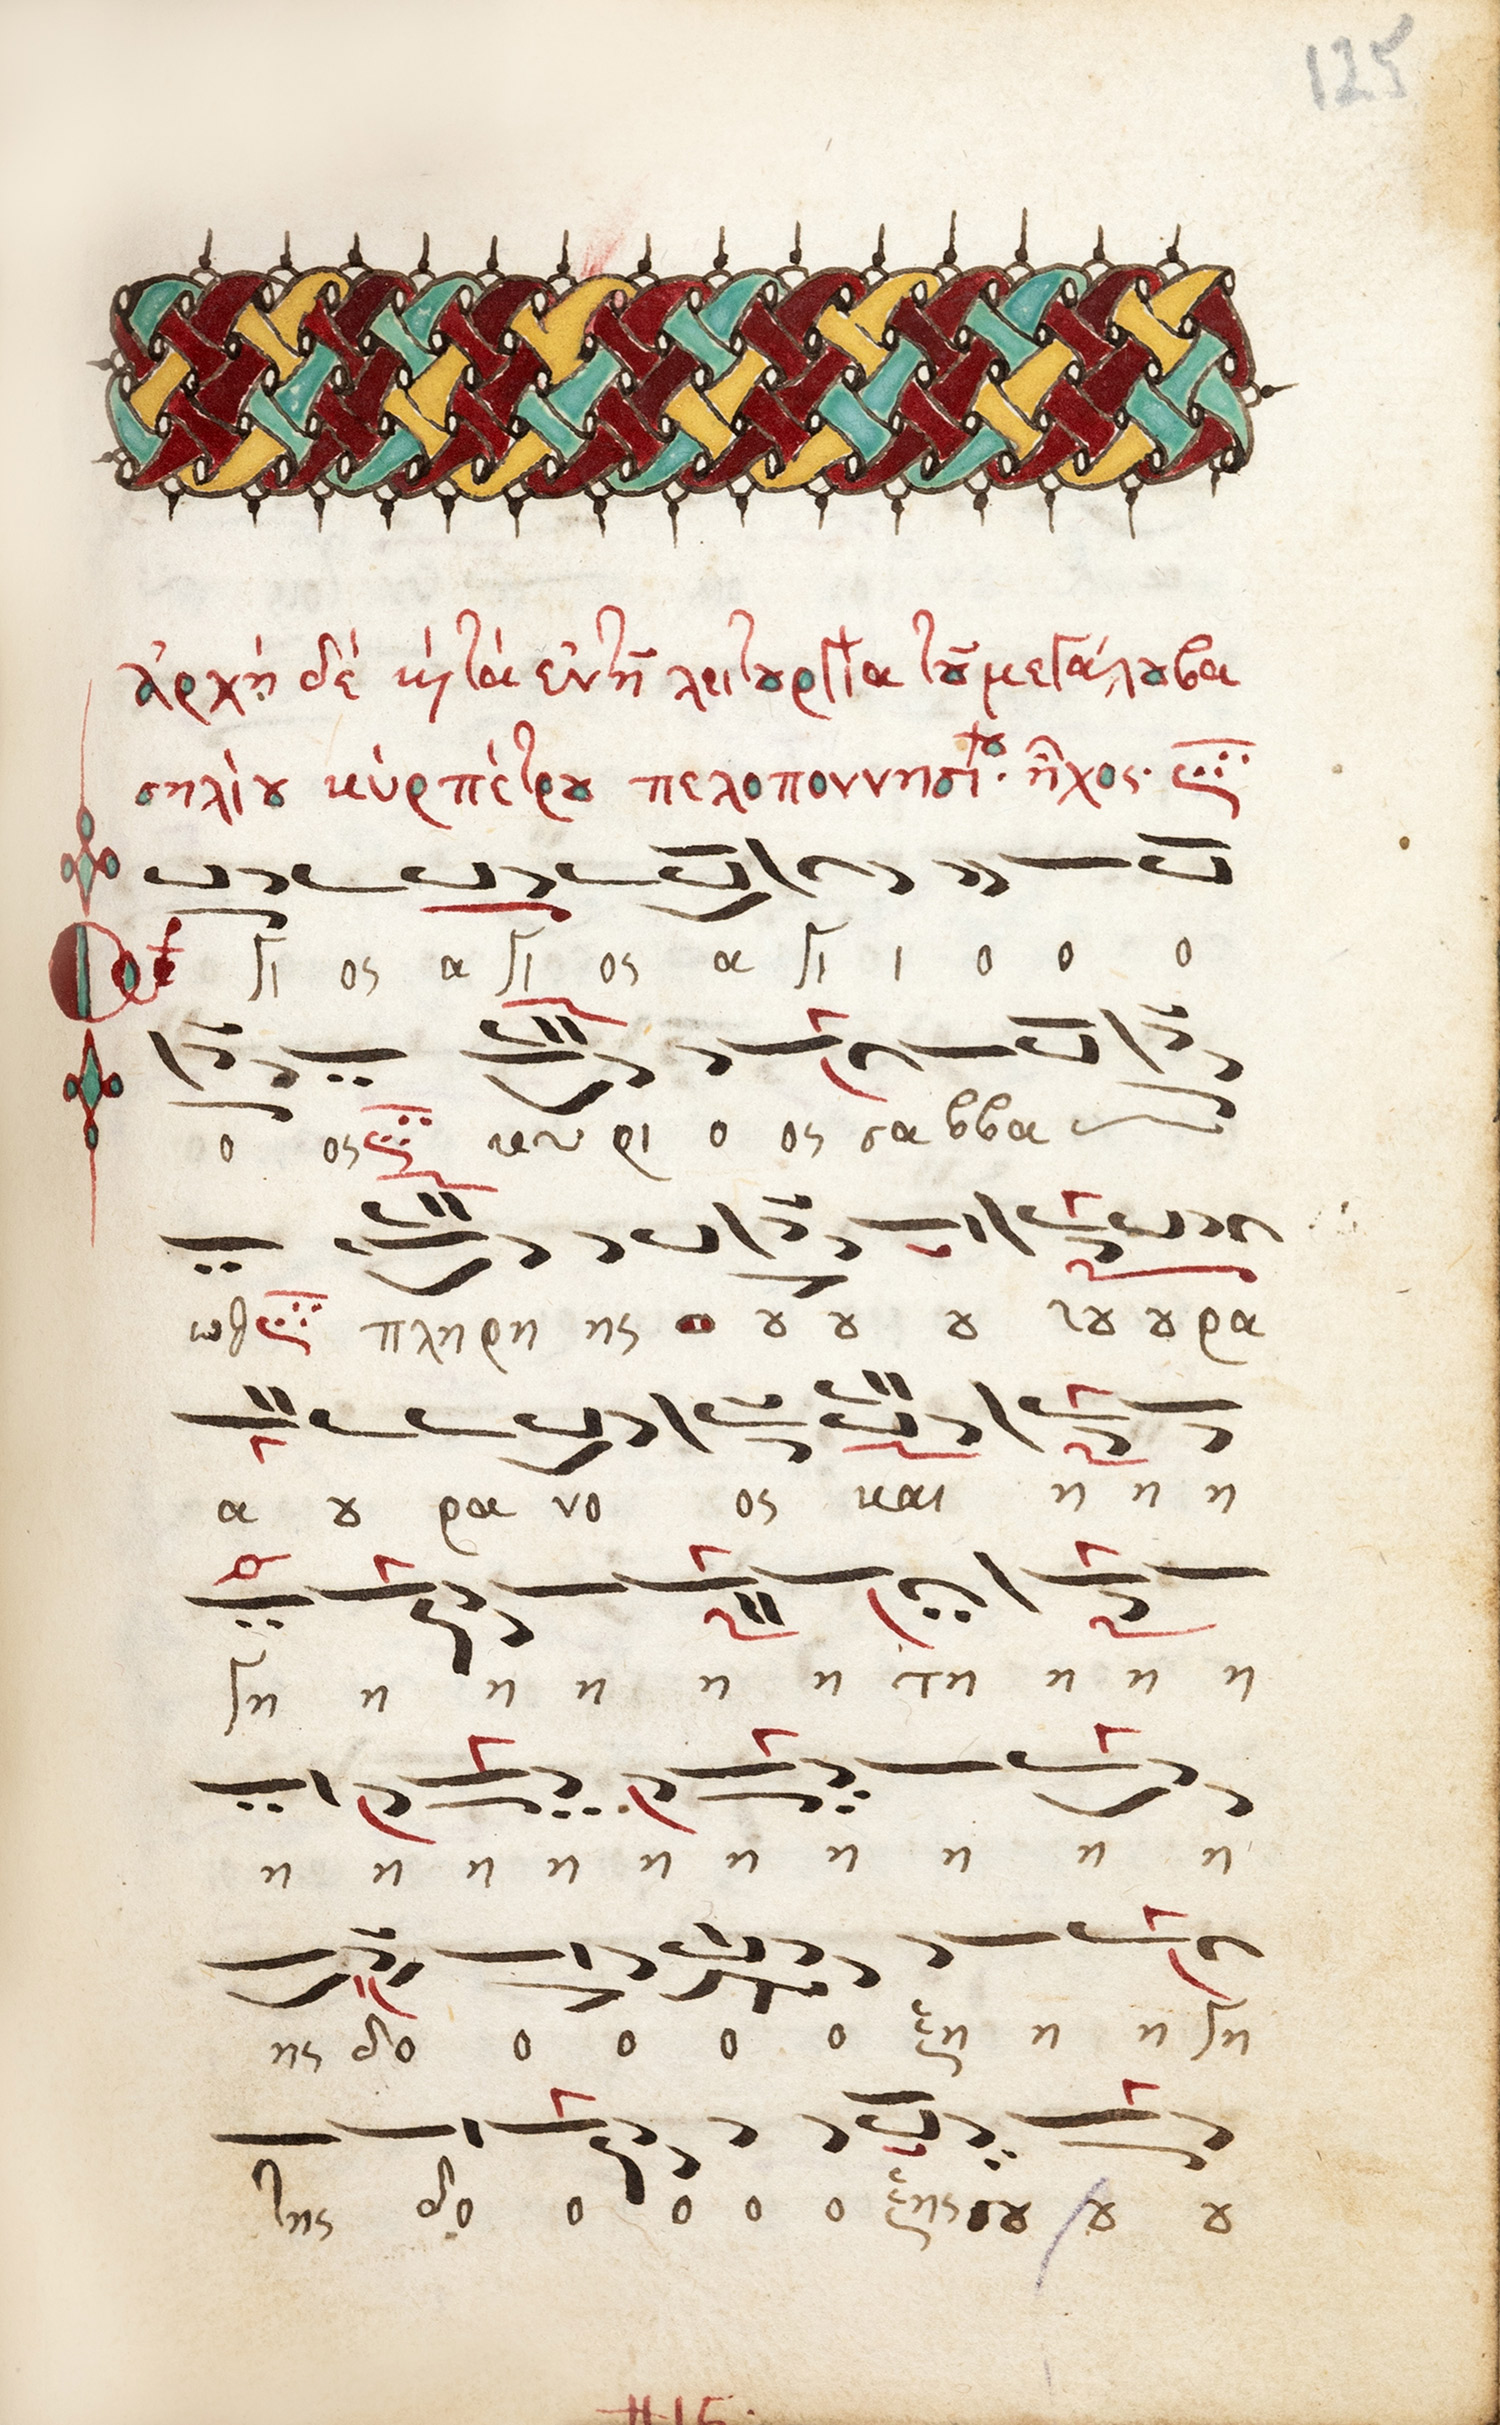 125
ἀρχή δὲ κὴ τὰ ἐν τῆ λειτουργία τοῦ μεγάλου βα
σηλίου κὺρ πέτρου πελοποννησίου· ἦχος·
Α γι ος α γι ος α γι ι ο ο ο
ο ος κυ ρι ο ος σα ββα
ωθ πλη ρη ης ο ου ου ου του ου ρα
α ου ρα νο ος και η η η
γη η η η η η τη η η η
η η η η η η η η η η
ης δο ο ο ο ο ξη η η γη
της δο ο ο ο ο ξης σου ου ου